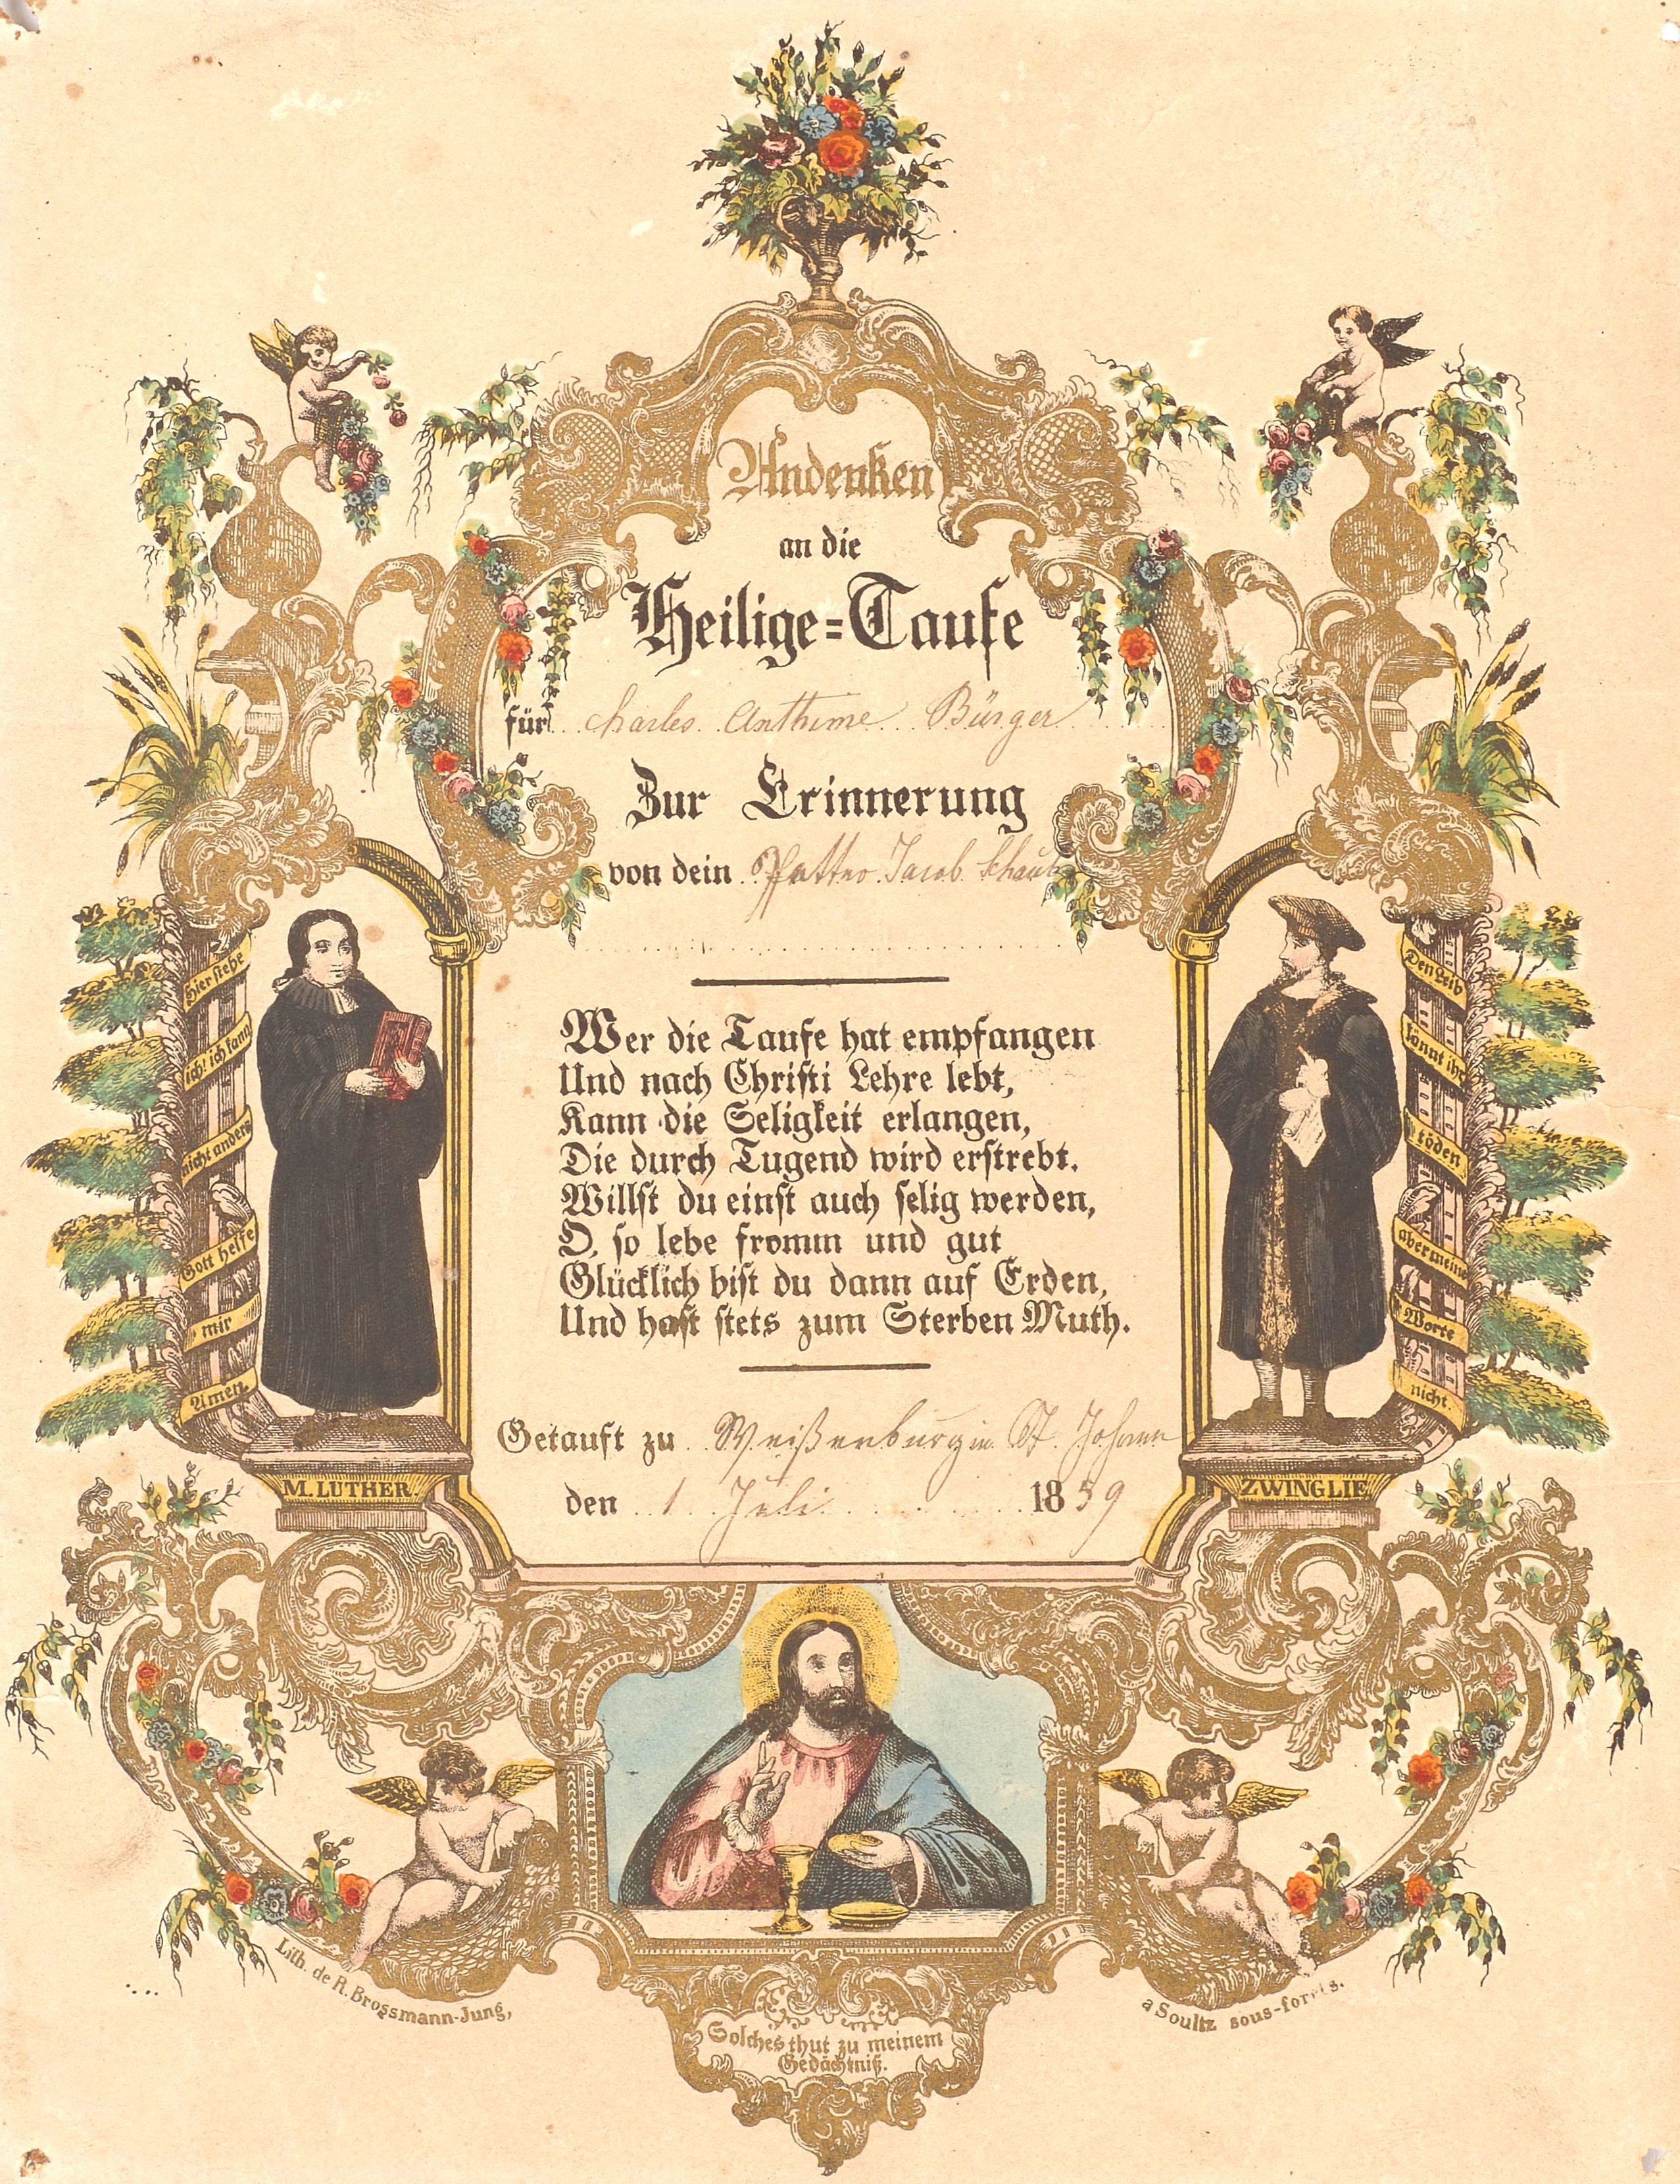 Andenken
an die
Heilige=Taufe
für Charles Anthime Bürger
Zur Erinnerung
von dein Jacob Schaub
Wer die Taufe hat empfangen
Und nach Christi Lehre lebt,
Kann die Seligkeit erlangen,
Die durch Tugend wird erstrebt.
Willst du einst auch selig werden,
O, so lebe fromm und gut
Glücklich bist du dann auf Erden,
Und hast stets zum Sterben Muth.
Getauft zu Weißenburg in St Johann
den 1 Juli 1859
Hier stehe
ich! ich kann
nicht anders
Gott helfe
mir
Amen
M. LUTHER.
Den Leib
könnt ihr
töden
aber meine
Worte
nicht.
ZWINGLIE
Lith. de R. Brossmann-Jung,
a Soultz sous-forêts.
Solches thut zu meinem
Gedächtniß.